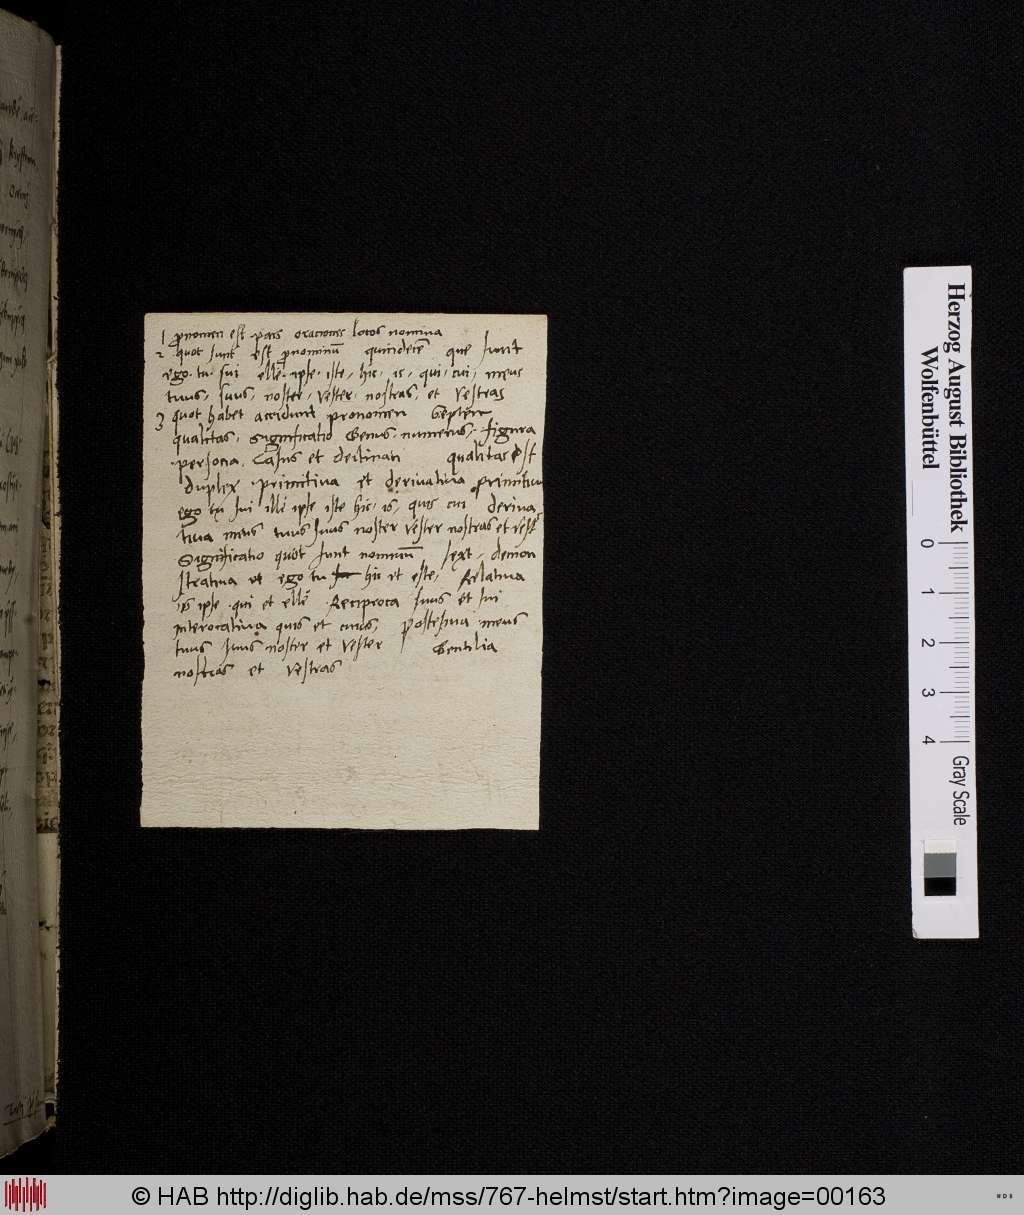 1 pronomen est pars oraciones locos nomina
2 quot sunt est pronominū quindecē que sunt
ego · tu · sui ellē · ipse · iste · hic · is · qui · cui · meus
tuus · suus · noster · vester · nostras · et vestras
3 quot habet accidunt pronomen Septem
qualitas · significatio Genus · numerus · figura
persona · Casus et declinati qualitas Est
duplex · primitiva et derivativa primitiva
ego tu sui illē ipse iste hic · is · quis cui deriva
tiva meus tuus suus noster vester nostras et vest
Significatio quot sunt nominū sext · demon
strativa ut ego tu hic et este · Relativa
is ipse · qui et ellē Reciproca suus et sui
interocativa quis et cuius, possesiva · meus
tuus suus noster et vester Gentilia
nostras et vestras
Herzog August Bibliothek
Wolfenbüttel
0 1 2 3 4
Gray Scale
© HAB http://diglib.hab.de/mss/767-helmst/start.htm?image=00163